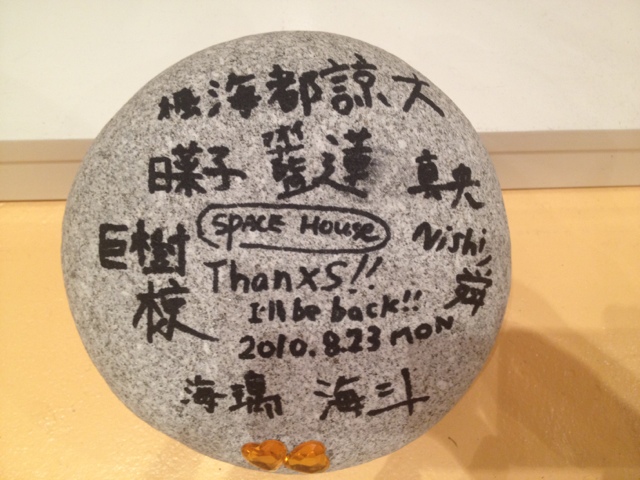 海都諒大
日菜子 藍蓮 真央
巨樹 SPACE HOUSE Nishi
椋 ThanxS!! 舜
I'll be back!!
2010.8.23 MON
海璃 海斗